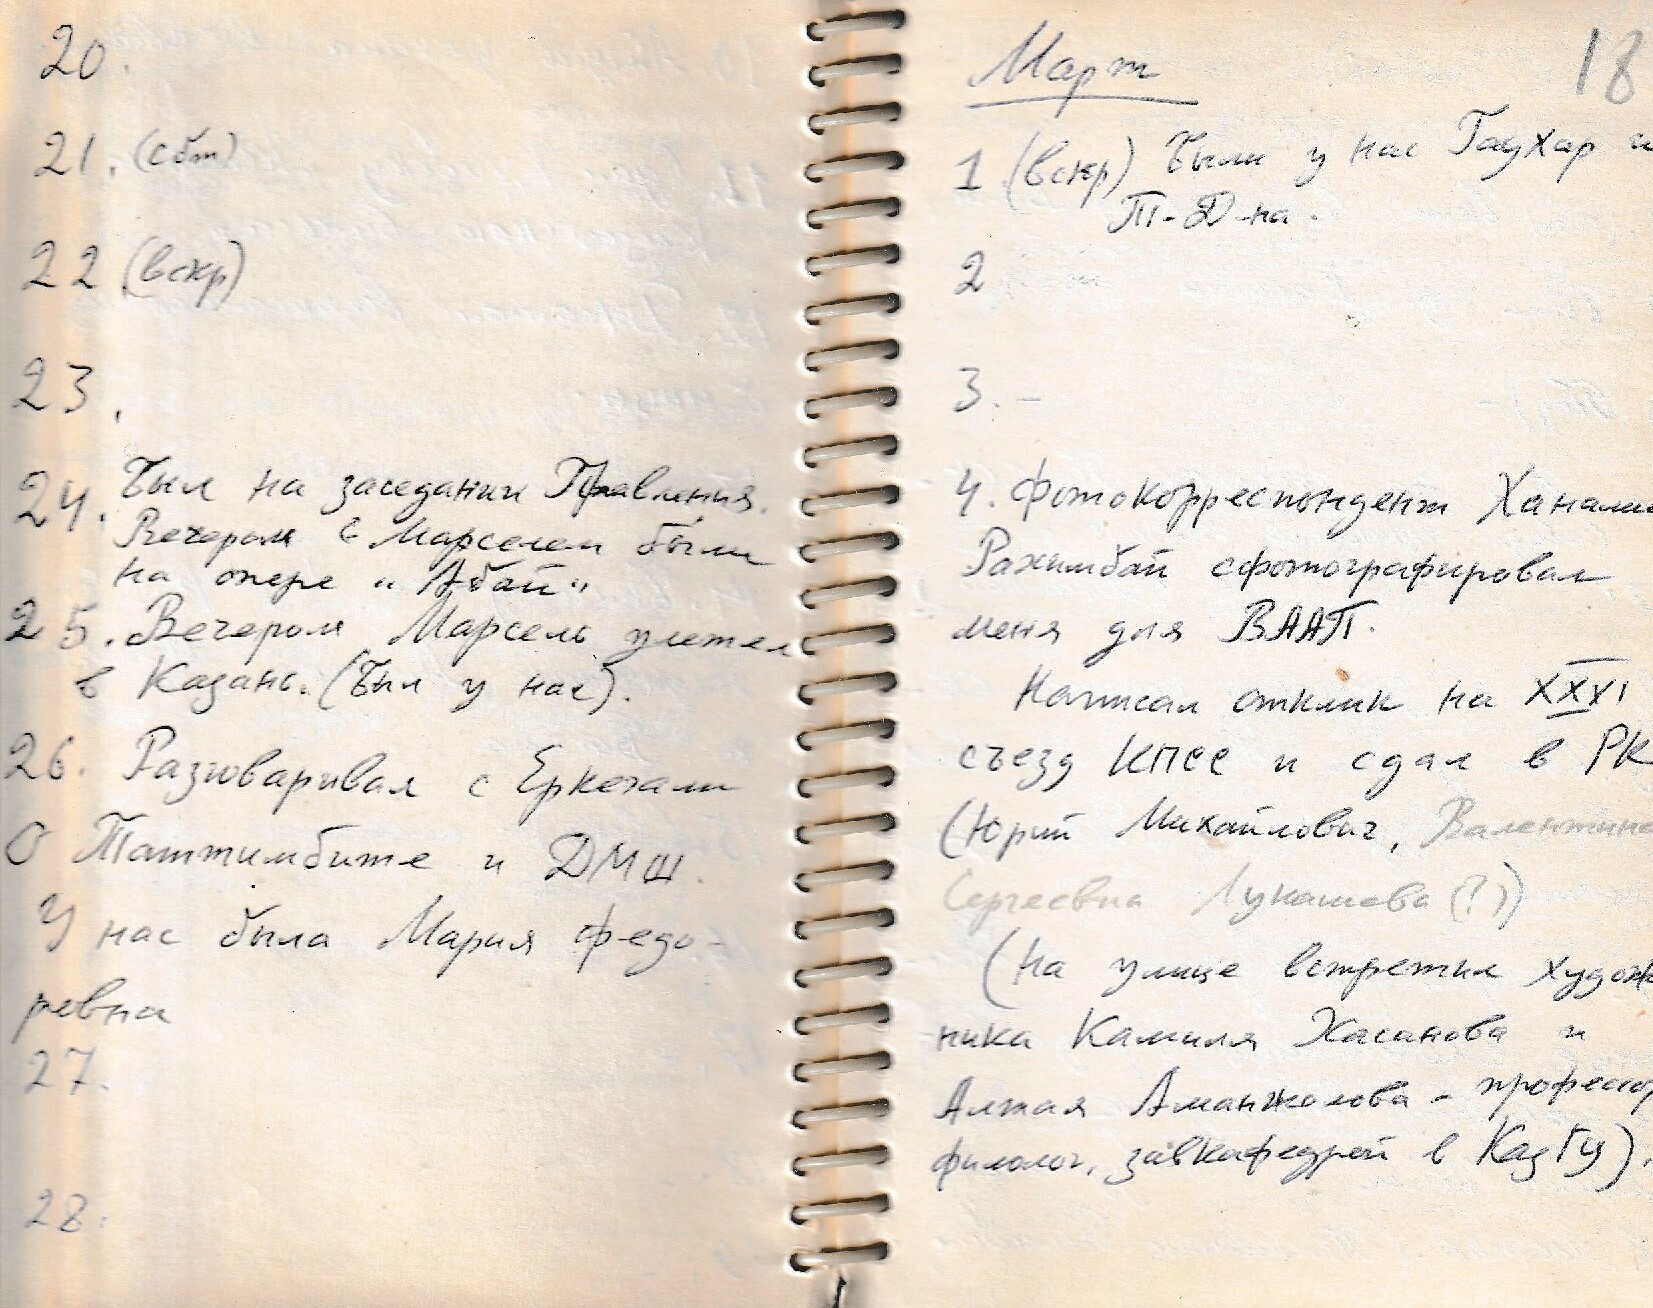 20.
21. (сбт)
22 (вскр)
23.
24. Был на заседании Правления.
Вечером с Марселем были
на опере "Абай"
25. Вечером Марсель улетел
в Казань. (Был у нас).
26. Разговаривал с Еркегали
о Таттимбите и ДМШ.
У нас была Мария Федо-
ровна
27.
28.
18
Март
1 (вскр) Были у нас Гаухар и
Т-Д-на.
2
3. -
4. Фотокорреспондент
Рахимбай сфотографировал
меня для ВААП.
Написал отклик на XXXI
съезд КПСС и сдал в РК
(Юрий Михайлович, Валентина
Сергеевна Лукашева (?))
(На улице встретил худож
ника Камиля Хасанова и
Алтая Аманжолова - профессор
филолог, завкафедрой в КазГУ).